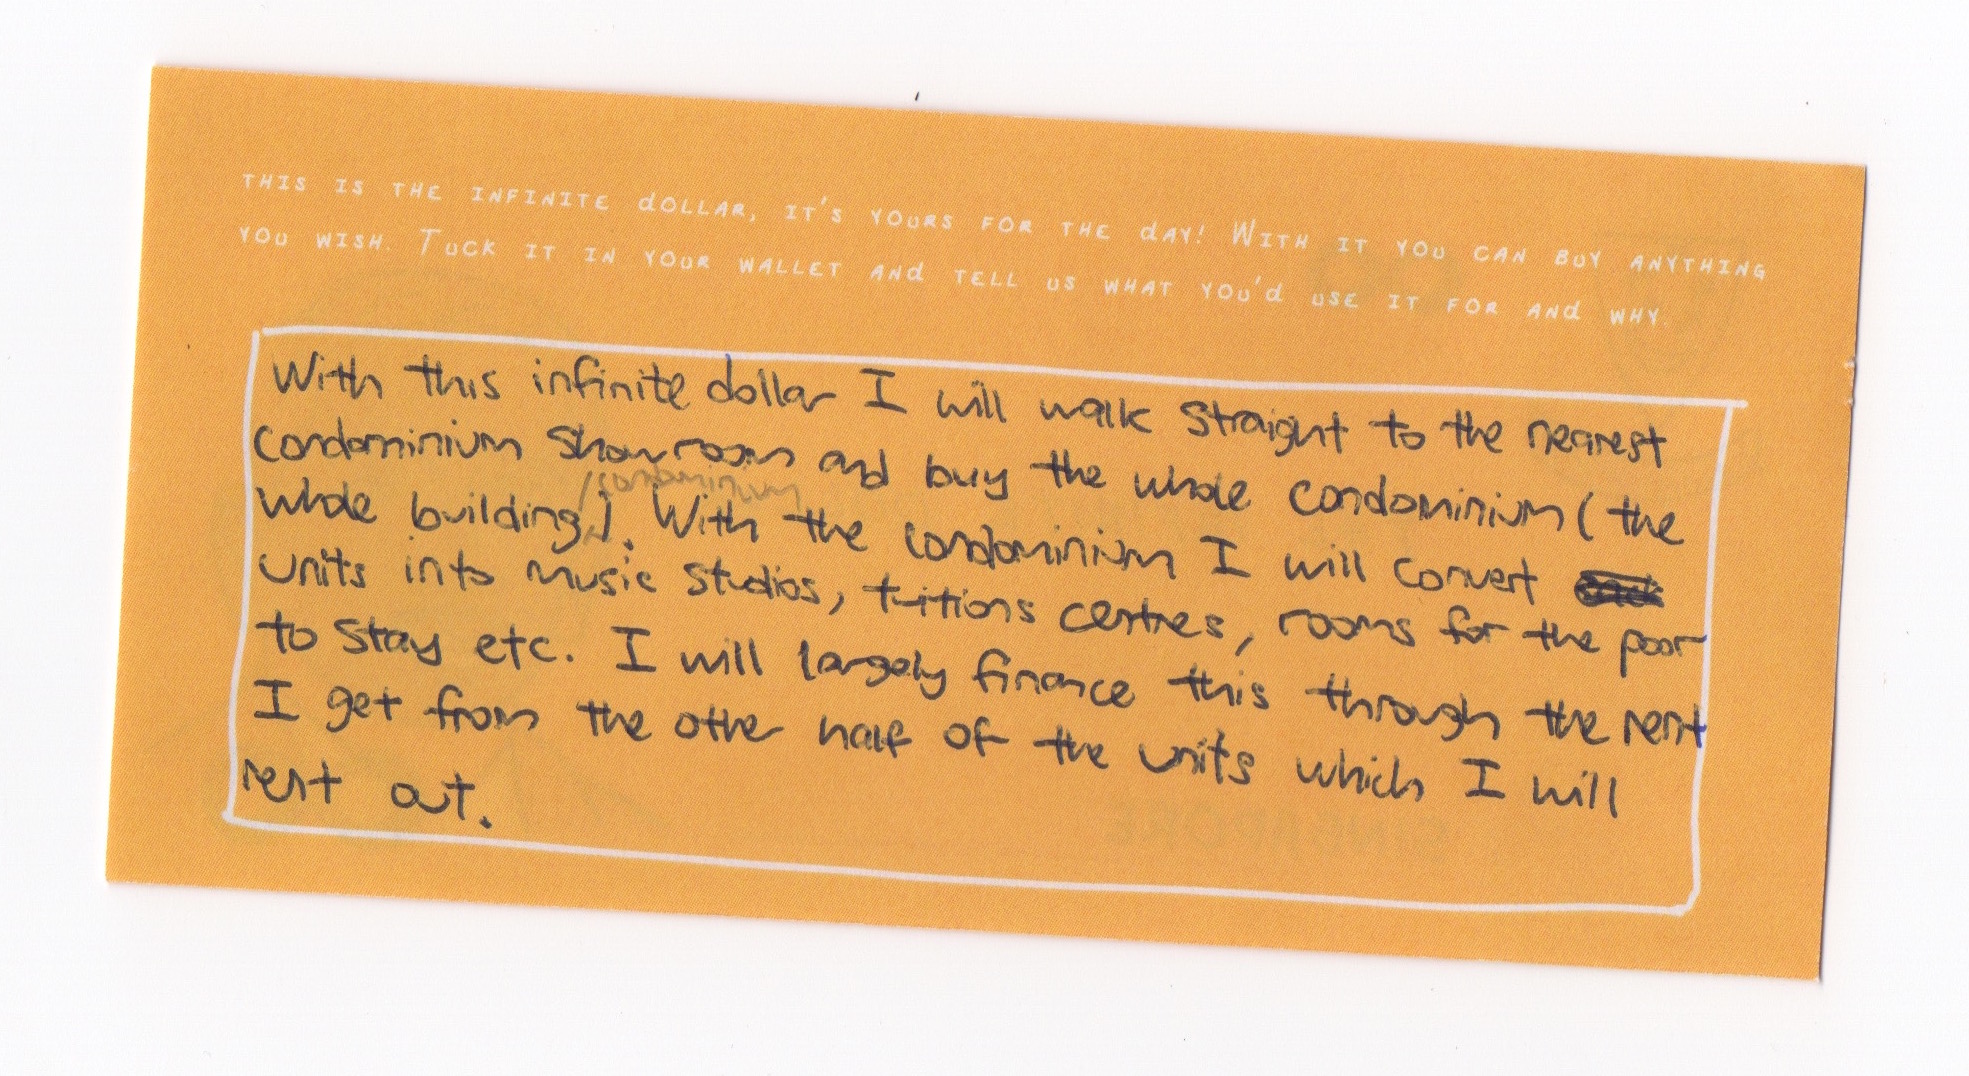 THIS IS THE INFINITE DOLLAR, IT'S YOURS FOR THE DAY! WITH IT YOU CAN BUY ANYTHING
YOU WISH. TUCK IT IN YOUR WALLET AND TELL US WHAT YOU'D USE IT FOR AND WHY.
With this infinite dollar I will walk straight to the nearest
condominium showroom and buy the whole condominium (the
whole building/condominium). With the condominium I will convert
units into music studios, tuitions centres, rooms for the poor
to stay etc. I will largely finance this through the rent
I get from the other half of the units which I will
rent out.